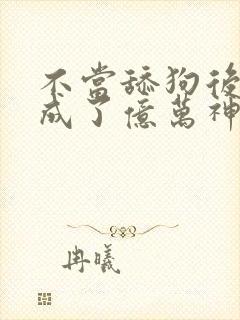 不當舔狗後
成了億萬神
冉曦